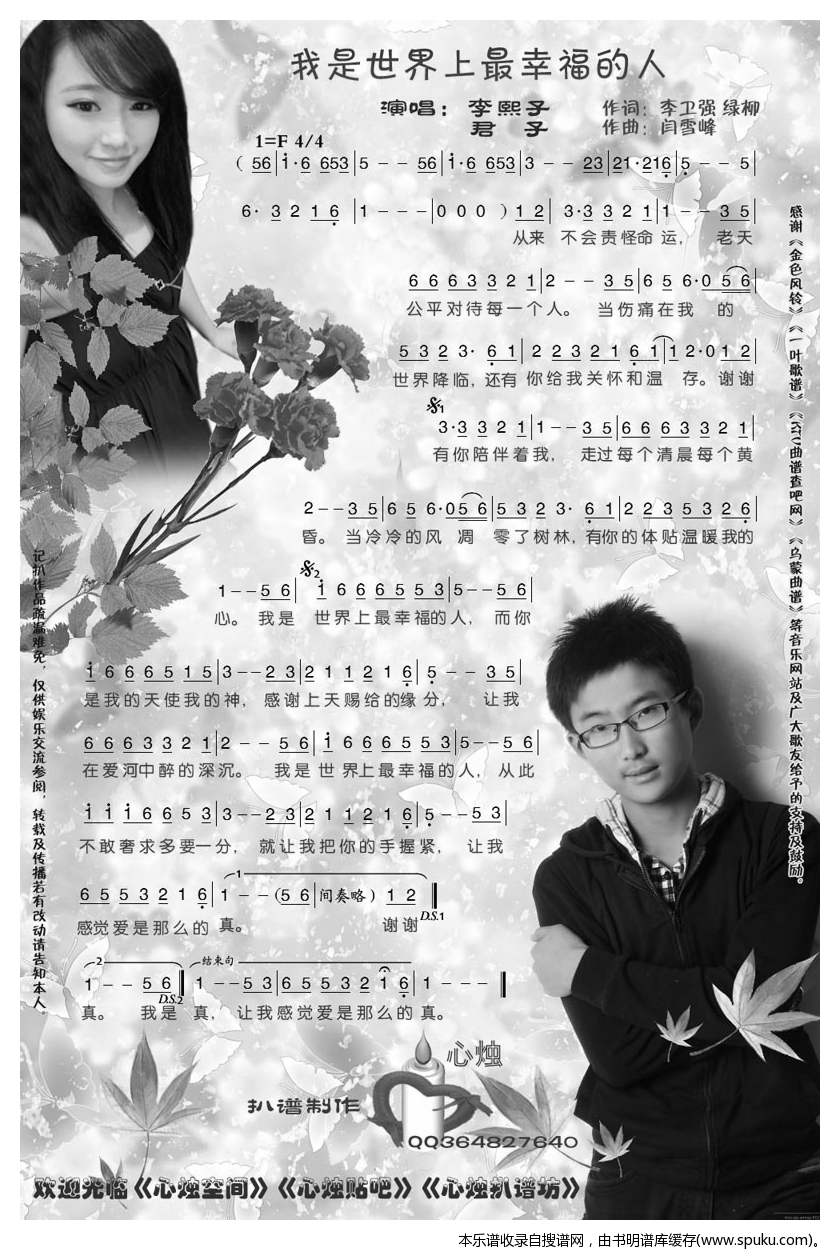 我是世界上最幸福的人
演唱：李熙子 作词：李卫强 绿柳
君 子 作曲：闫雪峰
1=F 4/4
( 56 | i·6 653 | 5 - - 56 | i·6 653 | 3 - - 23 | 21·216 | 5 - - 5 |
6· 3 2 1 6 | 1 - - - | 0 0 0 ) 1 2 | 3·3 3 2 1 | 1 - - 3 5 |
从来 不会责怪命运， 老天
6 6 6 3 3 2 1 | 2 - - 3 5 | 6 5 6·0 5 6 |
公平对待每一个人。 当伤痛在我 的
5 3 2 3· 6 1 | 2 2 3 2 1 6 1 | 1 2·0 1 2 |
世界降临，还有 你给我关怀和温 存。谢谢
𝄋1
3·3 3 2 1 | 1 - - 3 5 | 6 6 6 3 3 2 1 |
有你陪伴着我， 走过每个清晨每个黄
2 - - 3 5 | 6 5 6·0 5 6 | 5 3 2 3· 6 1 | 2 2 3 5 3 2 6 |
昏。 当冷冷的风 凋 零了树林，有你的体贴温暖我的
𝄋2
1 - - 5 6 | i 6 6 6 5 5 3 | 5 - - 5 6 |
心。 我是 世界上最幸福的人， 而你
i 6 6 6 5 1 5 | 3 - - 2 3 | 2 1 1 2 1 6 | 5 - - 3 5 |
是我的天使我的神， 感谢上天赐给的缘分， 让我
6 6 6 3 3 2 1 | 2 - - 5 6 | i 6 6 6 5 5 3 | 5 - - 5 6 |
在爱河中醉的深沉。 我是 世界上最幸福的人，从此
i i i 6 6 5 3 | 3 - - 2 3 | 2 1 1 2 1 6 | 5 - - 5 3 |
不敢奢求多要一分， 就让我把你的手握紧， 让我
1
6 5 5 3 2 1 6 | 1 - - (5 6 | 间奏略) 1 2 ‖
D.S.1
感觉爱是那么的 真。 谢谢
2 结束句
1 - - 5 6 ‖ 1 - - 5 3 | 6 5 5 3 2 1 6 | 1 - - - ‖
D.S.2
真。 我是 真， 让我感觉爱是那么的 真。
感谢《金色风铃》《一叶歌谱》《417曲谱查吧网》《乌蒙曲谱》等音乐网站及广大歌友给予的支持及鼓励。
记扒作品疏漏难免，仅供娱乐交流参阅，转载及传播若有改动请告知本人。
心烛
扒谱制作
QQ364827640
欢迎光临《心烛空间》《心烛贴吧》《心烛扒谱坊》
本乐谱收录自搜谱网，由书明谱库缓存(www.spuku.com)。